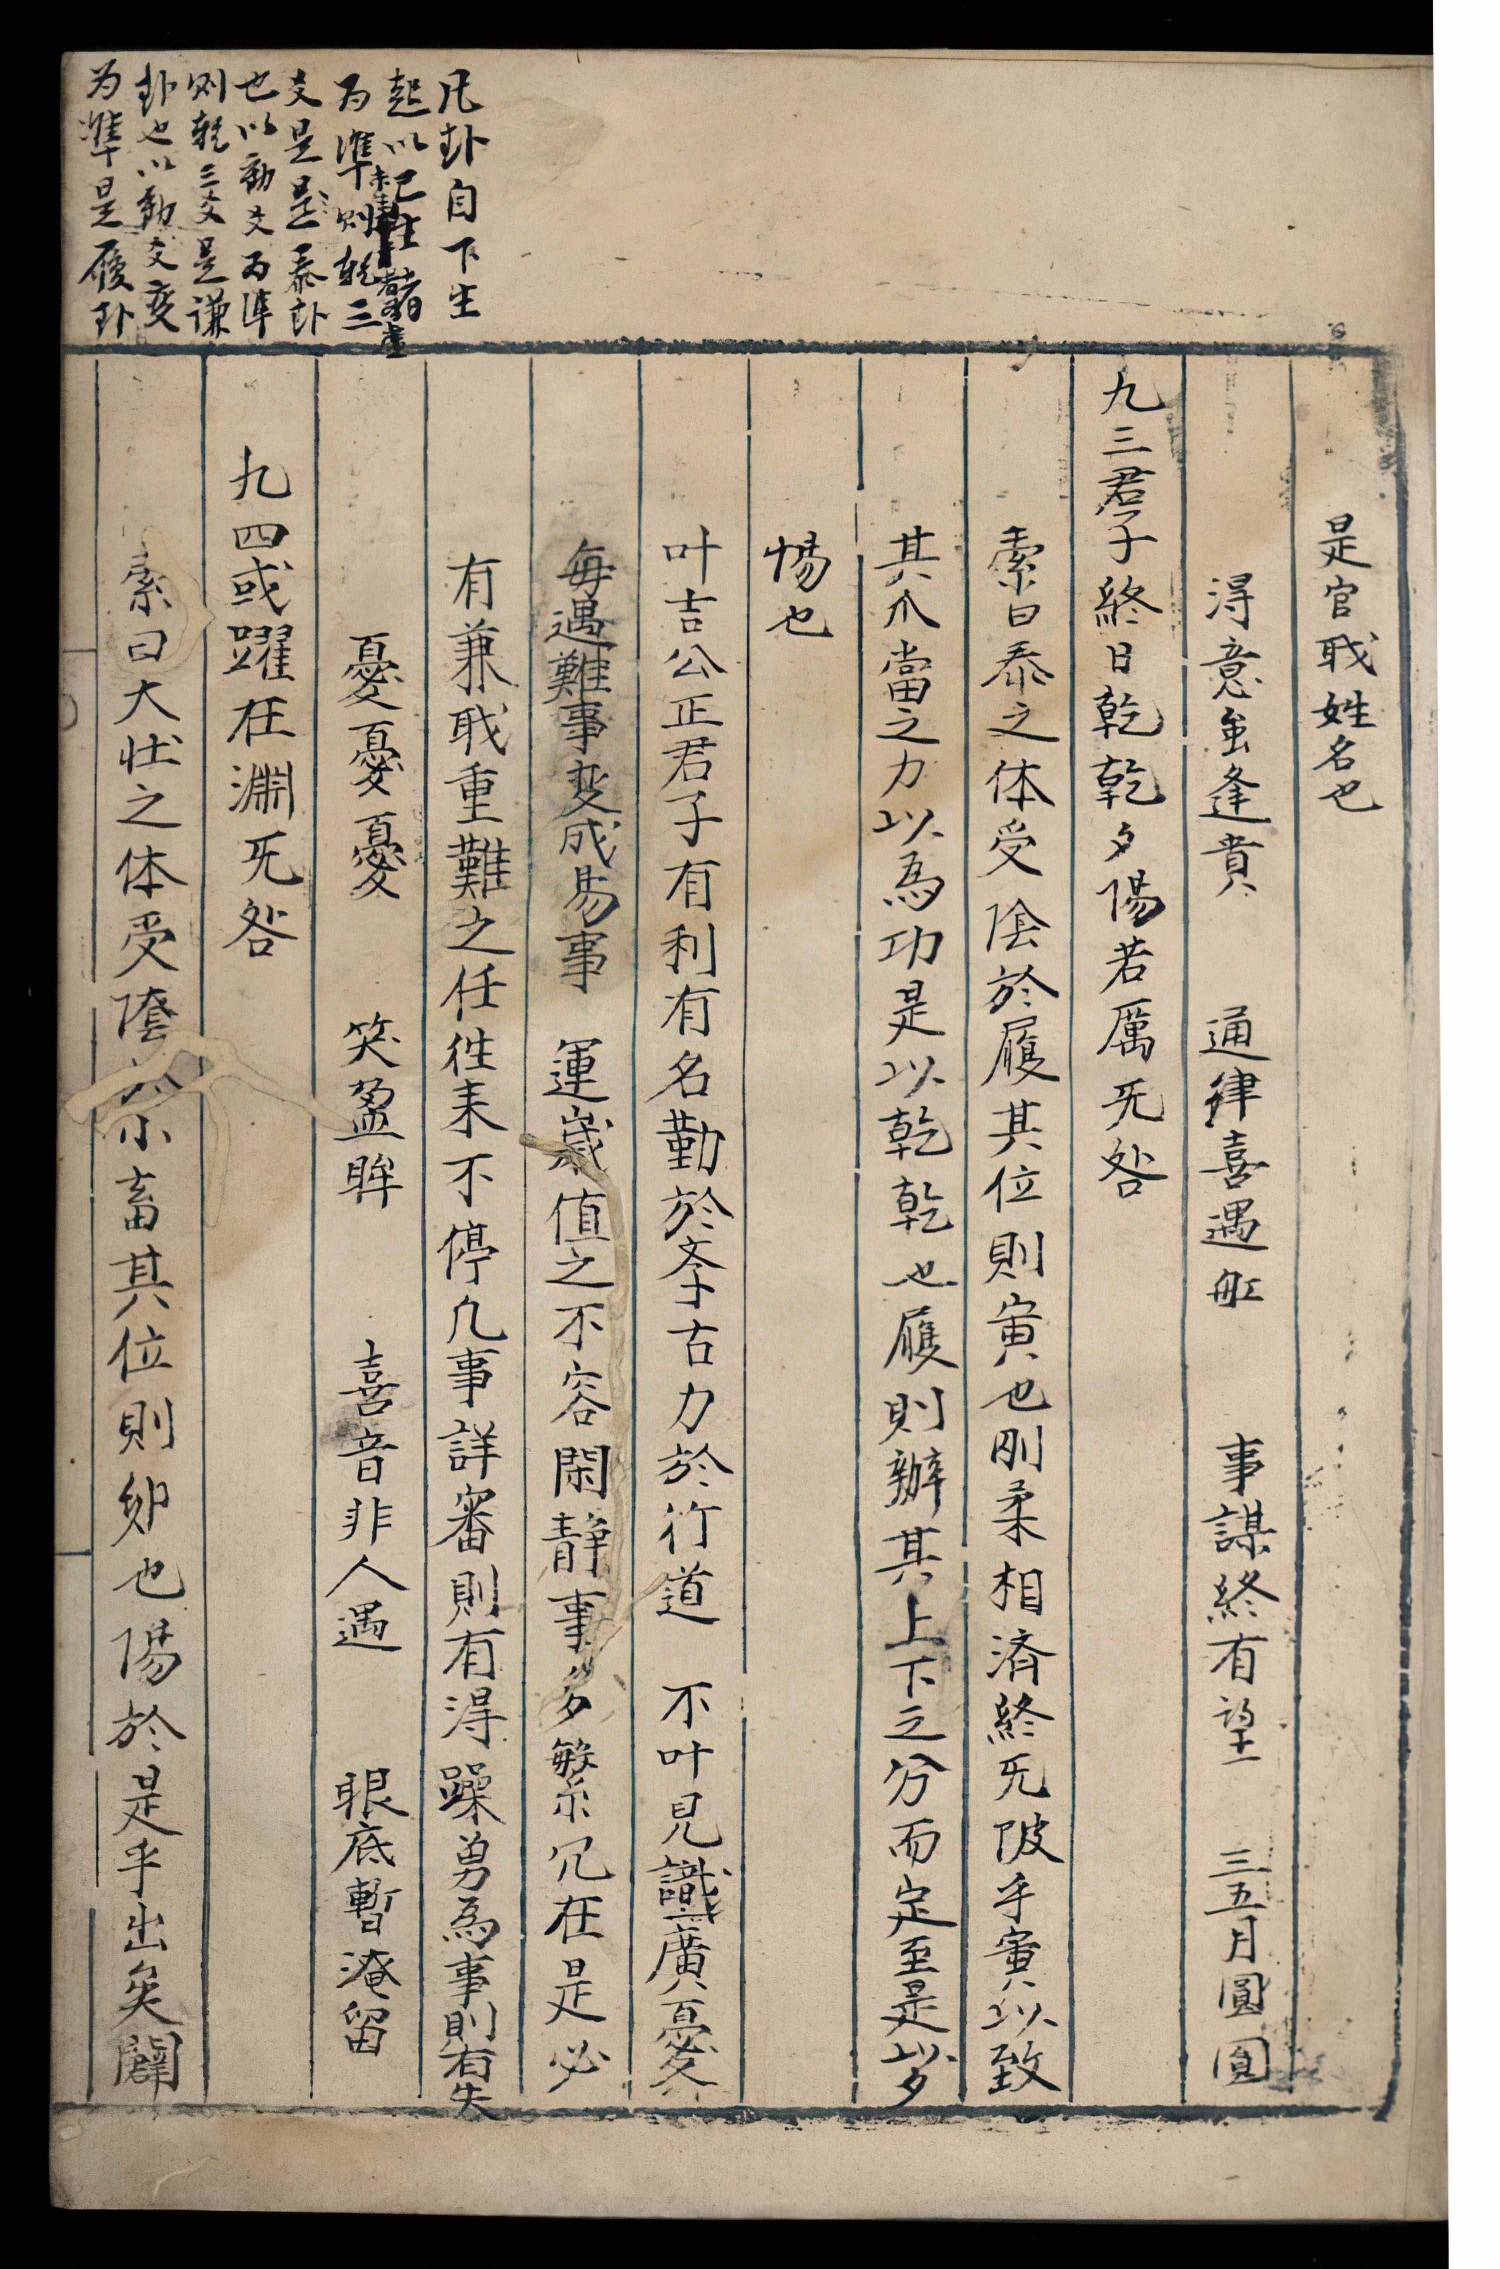 凡卦自下生
起以已往者
未畫者虛
为準则乾三
爻是是泰卦
也以動爻为準
则乾三爻是谦
卦也以動爻变
为準是履卦
是官职姓名也
淂意虽逢貴　通律喜遇舡　事謀終有望　三五月圓圓
九三君子終日乾乾夕惕若厲旡咎
索曰泰之体受陰於履其位則寅也刚柔相済終旡陂乎寅以致
其爪當之力以為功是以乾乾也履則辦其上下之分而定至是以夕
惕也
叶吉公正君子有利有名勤於斈古力於行道　不叶見識廣憂
每遇難事变成易事　運嵗值之不容閑靜事多繁冗在是必
有兼职重難之任徃耒不停几事詳審則有淂躁勇為事則有失
憂憂憂　笑盈眸　喜音非人遇　眼底暫淹留
九四或躍在淵旡咎
索曰大壮之体受陰於小畜其位則卯也陽於是乎出矣闢